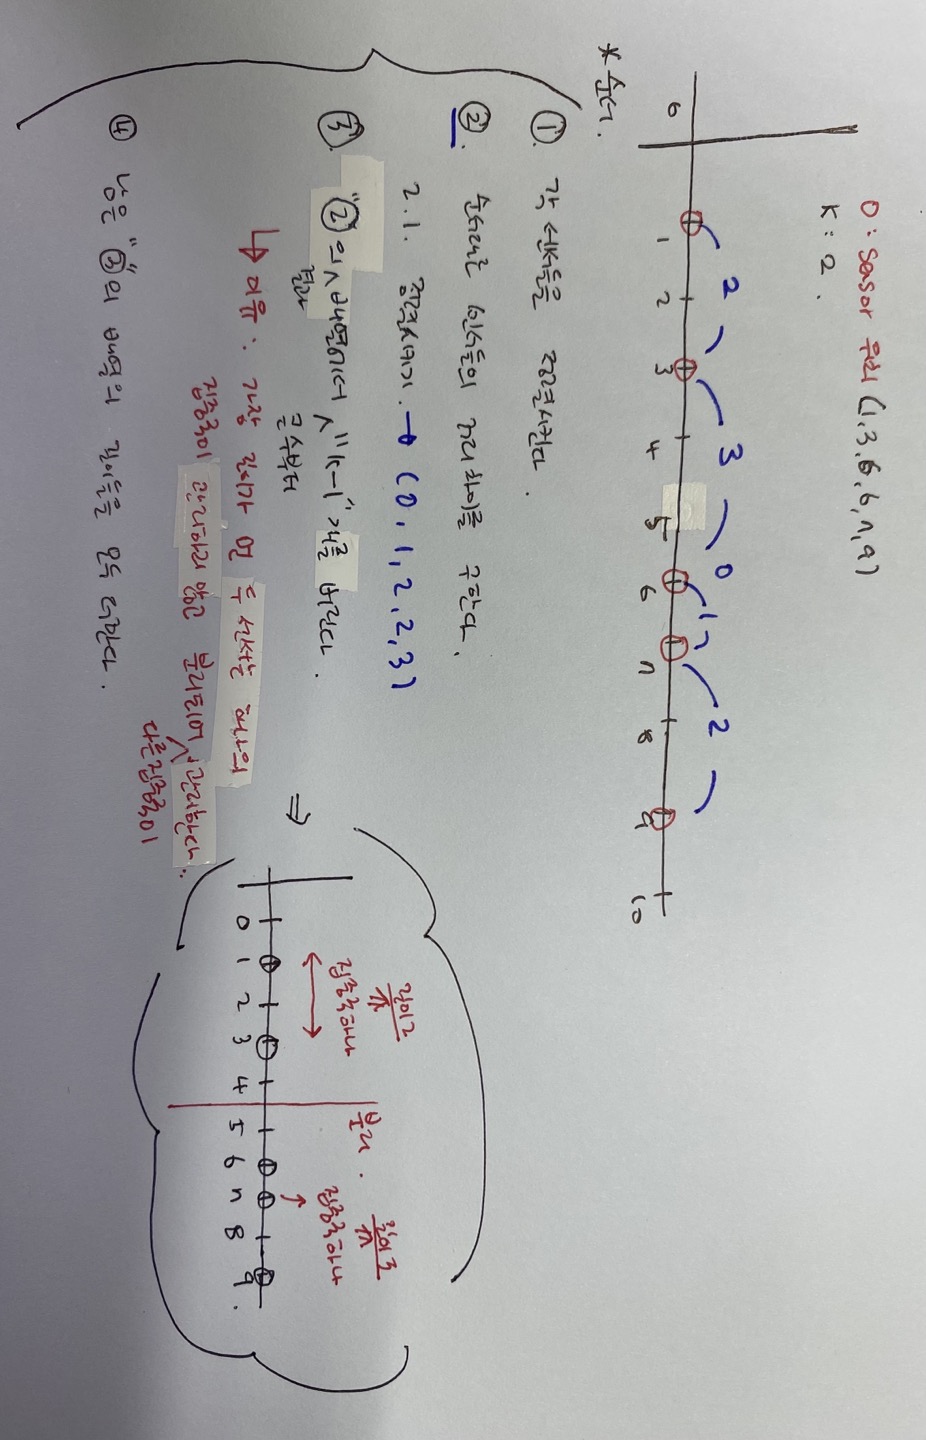 O : Seasor 위치 (1,3,6,6,7,9)
K : 2 .
2 3 0 1 2
0 1 2 3 4 5 6 7 8 9 10
* 순서.
①. 각 센서들을 정렬시킨다.
②. 순서대로 센서들의 거리 차이를 구한다.
2.1. 정렬시키기. → (0, 1, 2, 2, 3)
③. "②"의 결과 배열에서 큰 수부터 "K-1" 개를 버린다.
↳ 이유: 가장 길이가 먼 두 센서는 하나의
집중국이 관리하지 않고 분리되어 다른 집중국이 관리한다..
④ 남은 "③"의 배열의 길이들을 모두 더한다.
⇒
길이 2
집중국 하나
분리.
길이 3
집중국 하나
0 1 2 3 4 5 6 7 8 9.